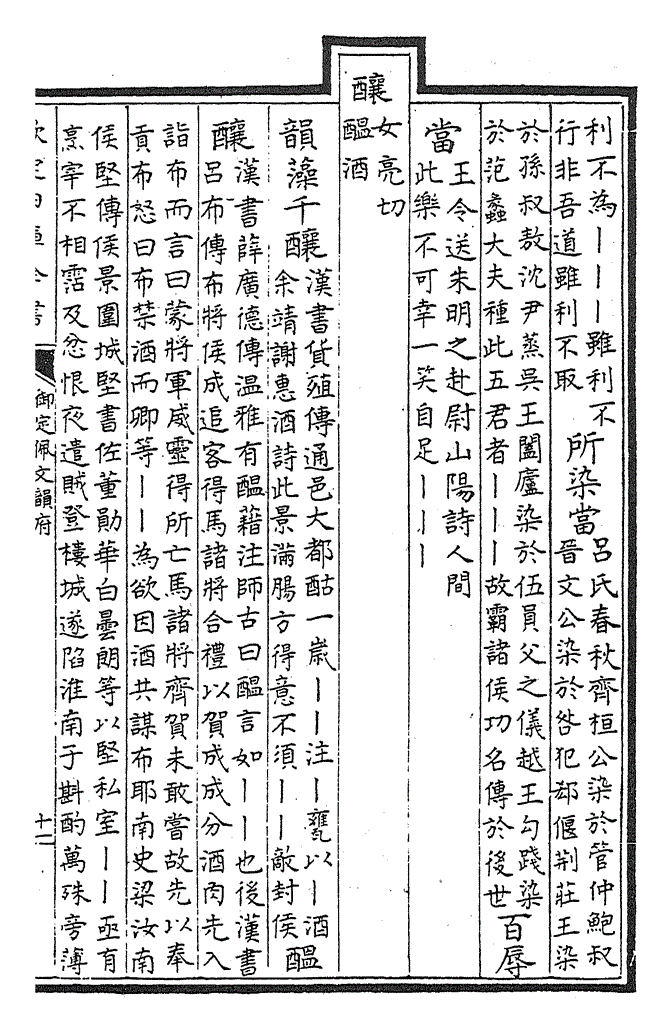 利不為｜｜｜雖利不
行非吾道雖利不取
所染當
呂氏春秋齊桓公染於管仲鮑叔
晉文公染於咎犯郄偃荆莊王染
於孫叔敖沈尹蒸吳王闔廬染於伍員父之儀越王勾踐染
於范蠡大夫種此五君者｜｜｜故霸諸侯功名傳於後世
百辱
當
王令送朱明之赴尉山陽詩人間
此樂不可幸一笑自足｜｜｜
釀
女亮切
醖酒
韻藻千釀
漢書貨殖傳通邑大都酤一歳｜｜注｜甕以｜酒
余靖謝惠酒詩此景滿腸方得意不須｜｜敵封侯
醖
釀
漢書薛廣德傳温雅有醖藉注師古曰醖言如｜｜也後漢書
呂布傳布將侯成追客得馬諸將合禮以賀成成分酒肉先入
詣布而言曰蒙將軍威靈得所亡馬諸將齊賀未敢嘗故先以奉
貢布怒曰布禁酒而卿等｜｜為欲因酒共謀布耶南史梁汝南
侯堅傳侯景圍城堅書佐董勛華白曇朗等以堅私室｜｜亟有
烹宰不相霑及忿恨夜遣賊登樓城遂陷淮南子斟酌萬殊旁薄
欽定四庫全書
御定佩文韻府
十二